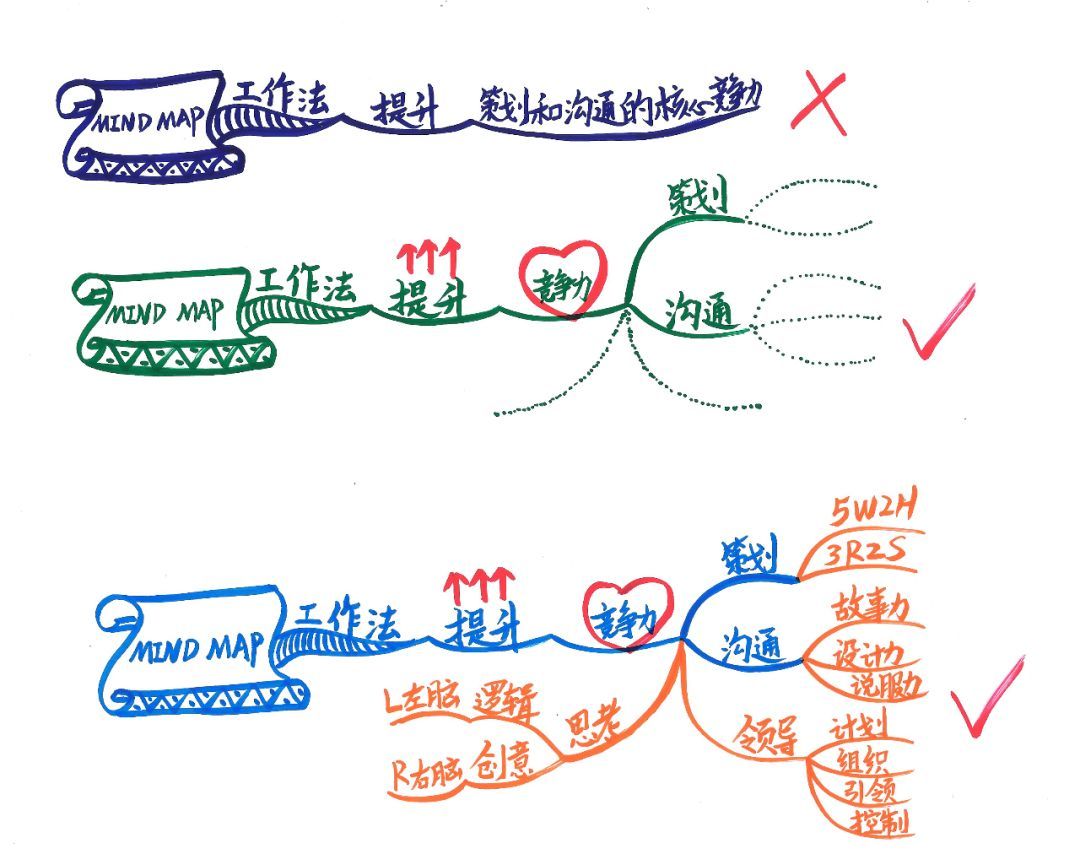 MIND MAP 工作法 提升 策划和沟通的核心竞争力
MIND MAP 工作法 提升 竞争力
策划
沟通
MIND MAP 工作法 提升 竞争力
策划
5W2H
3R2S
沟通
故事力
设计力
说服力
思考
逻辑
L左脑
创意
R右脑
领导
计划
组织
引领
控制